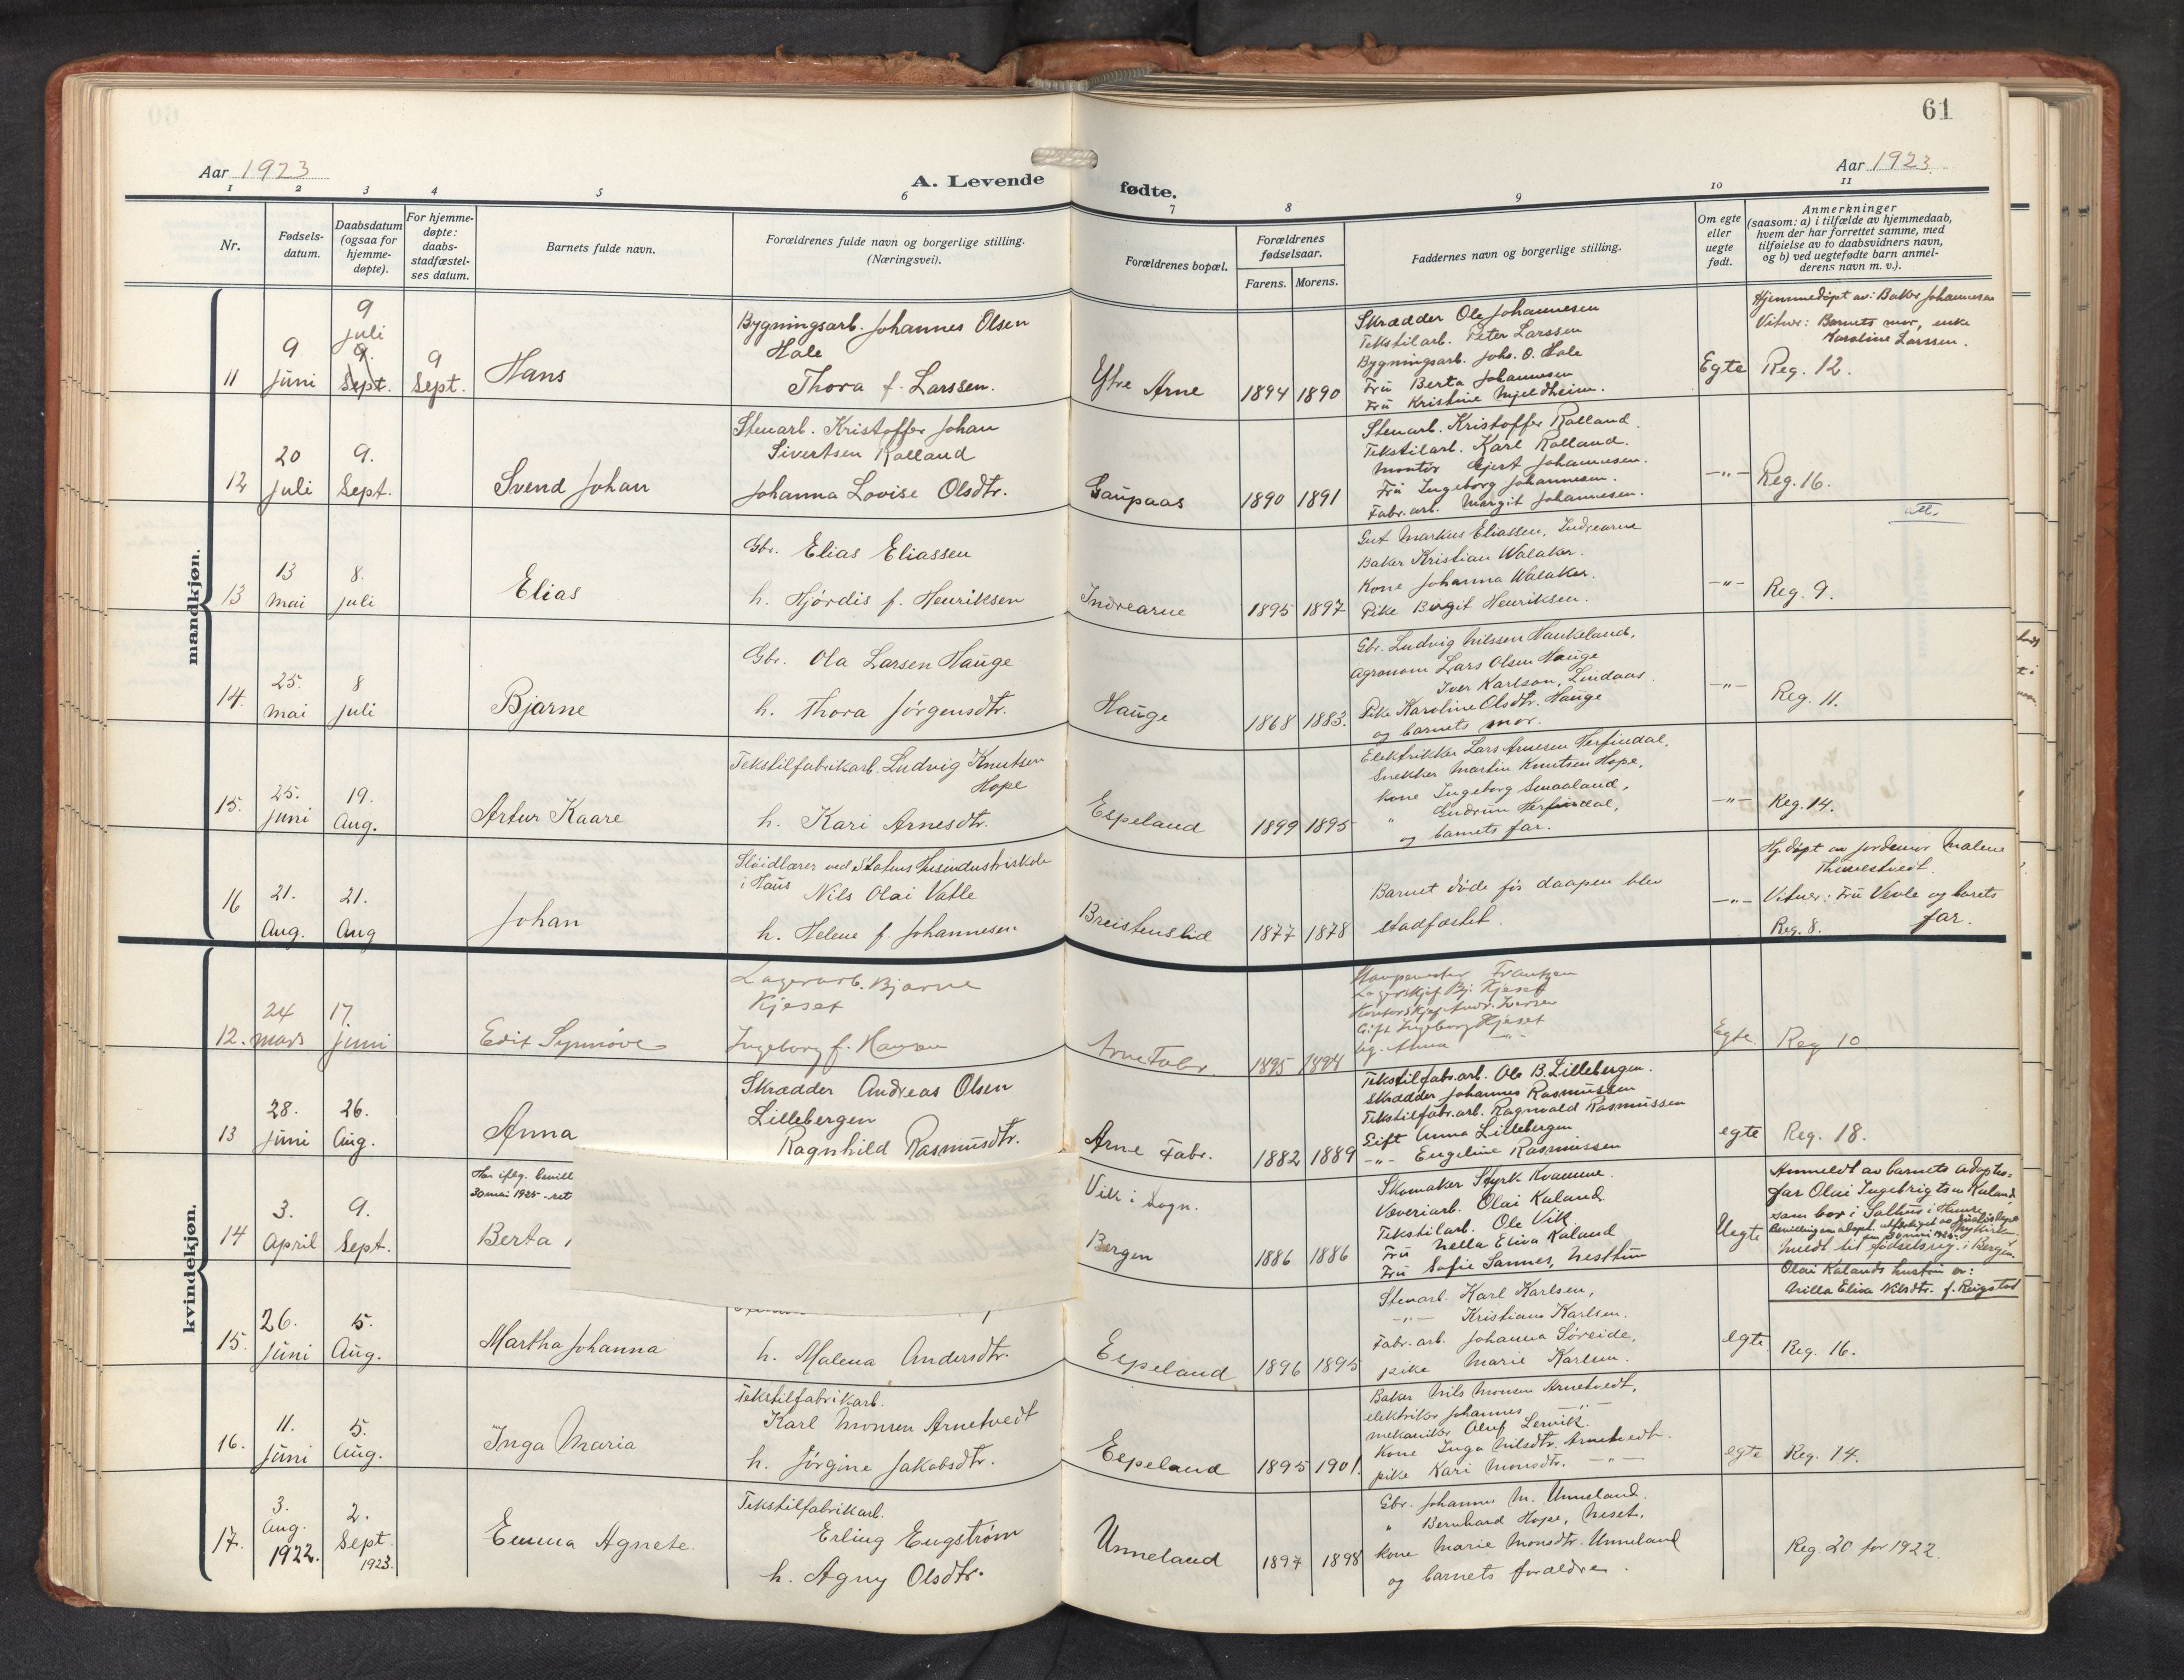 61
Aar 1923
Aar 1923
A. Levende fødte.
1 2 3 4 5 6 7 8 9 10 11
Nr.
Fødsels-
datum.
Daabsdatum
(ogsaa for
hjemme-
døpte).
For hjemme-
døpte:
daabs-
stadfæstel-
ses datum.
Barnets fulde navn.
Forældrenes fulde navn og borgerlige stilling.
(Næringsvei).
Forældrenes bopæl.
Forældrenes
fødselsaar.
Farens. Morens.
Faddernes navn og borgerlige stilling.
Om egte
eller
uegte
født.
Anmerkninger
(saasom: a) i tilfælde av hjemmedaab,
hvem der har forrettet samme, med
tilføielse av to daabsvidners navn,
og b) ved uegtefødte barn anmel-
derens navn m. v.).
mandkjøn.
11
9
Juni
9
juli
9.
Sept.
9
Sept.
Hans
Bygningsarb. Johannes Olsen
Hale
Thora f. Larssen.
Ytre Arne
1894 1890
Skrædder Ole Johannesen
Tekstilarb. Peter Larssen
Bygningsarb. Johs. O. Hale
Fru Berta Johannesen
Fru Kristine Mjeldheim.
Egte
Hjemmedøpt av: Baker Johannesen
Vitner: Barnets mor, enke
Karoline Larssen.
Reg. 12.
12
20
Juli
9.
Sept.
Svend Johan
Stenarb. Kristoffer Johan
Sivertsen Rolland
Johanna Lovise Olsdtr.
Gaupaas
1890 1891
Stenarb. Kristoffer Rolland.
Tekstilarb. Karl Rolland.
Montør Gjert Johannesen.
Fru Ingeborg Johannesen.
Fabr. arb. Margit Johannesen.
—"—
Reg. 16.
13
13
Mai
8.
juli
Elias
Gbr. Elias Eliassen
h. Hjørdis f. Henriksen
Indrearne
1895 1897
Gut Markus Eliassen, Indrearne
Baker Kristian Walaker.
Kone Johanna Walaker.
Pike Birgit Henriksen.
—"—
Reg. 9.
14.
25.
Mai
8
juli
Bjarne
Gbr. Ola Larsen Hauge
h. Thora Jørgensdtr.
Hauge
1868 1883.
Gbr. Ludvig Nilssen Haukeland,
Agronom Lars Olsen Hauge
Iver Karlson, Lindaas.
Pike Karoline Olsdtr. Hauge
og barnets mor.
—"—
Reg. 11.
15.
25.
Juni
19.
Aug.
Artur Kaare
Tekstilfabrikarb. Ludvig Knutsen
Hope
h. Kari Arnesdtr.
Espeland
1899 1895
Elektrikker Lars Arnesen Herfindal,
Snekker Martin Knutsen Hope,
Kone Ingeborg Smaaland,
" Gudrun Herfindal,
og barnets far.
—"—
Reg. 14.
16
21.
Aug.
21.
Aug
Johan
Sløidlærer ved Statens Husindustriskole
i Haus
Nils Olai Vatle
h. Helene f. Johannesen
Breistenslid
1877 1878
Barnet døde før daapen blev
stadfæstet.
—"—
Hj. døpt av jordemor Malene
Vitner: Fru Vevle og barets
far.
Reg. 8.
kvindekjøn.
12.
24
mars
17
juni
Edit Synnøve
Lagerarb. Bjarne
Kjeset
Ingeborg f. Hansen
Arne Fabr.
1895 1894
Frantzen
Lagerskjef Bj. Kjeset
Gift Ingeborg Kjeset
Ug. Anna —"—
Egte
Reg 10
13
28.
Juni
26.
Aug.
Anna
Skrædder Andreas Olsen
Lillebergen
Ragnhild Rasmusdtr.
Arne Fabr.
1882 1889
Tekstilfabr. arb. Ole B. Lillebergen.
Skrædder Johannes Rasmussen
Tekstilfabr. arb. Ragnvald Rasmussen
Gift Anna Lillebergen
—"— Engeline Rasmussen
egte
Reg. 18.
14
3.
April
9.
Sept.
Har iflg. bevill
30 mai 1925 - ret
Berta
Vik i Sogn.
Bergen
1886 1886
Skomaker Styrk Kvamme.
Væveriarb. Olai Kaland
Tekstilarb. Ole Vik
Fru Nella Elisa Kaland
Fru Sofie Sannes, Nesttun
Uegte
Anmeldt av barnets adoptiv-
far Olai Ingebrigtsen Kaland
som bor i Salhus i Hamre
Meldt til fødselsreg. i Bergen.
Olai Kalands hustru er:
Nilla Elisa Nilsdtr. f. Reigstad
15.
26.
Juni
5.
Aug.
Martha Johanna
h. Malena Andersdtr.
Espeland
1896 1895
Stenarb. Karl Karlsen,
—"— Kristians Karlsen.
Fabr. arb. Johanna Søreide,
pike Marie Karlsen.
egte
Reg. 16.
16.
11.
Juni
5.
Aug.
Inga Maria
Tekstilfabrikarb.
Karl Monsen Arnetvedt
h. Jørgine Jakobsdtr.
Espeland
1895 1901.
Baker Nils Monsen Arnetvedt,
elektriker Johannes —"—
mekaniker Oluf Lervik.
Kone Inga Nilsdtr. Arnetvedt.
pike Kari Monsdtr. —"—
egte
Reg. 14.
17.
3.
Aug.
1922.
2.
Sept.
1923.
Emma Agnete.
Tekstilfabrikarb.
Erling Engstrøm
h. Agny Olsdtr.
Unneland
1897 1898
Gbr. Johannes M. Unneland.
" Bernhard Hope, Neset,
Kone Marie Monsdtr. Unneland
og barnets forældre.
Reg. 20 for 1922.